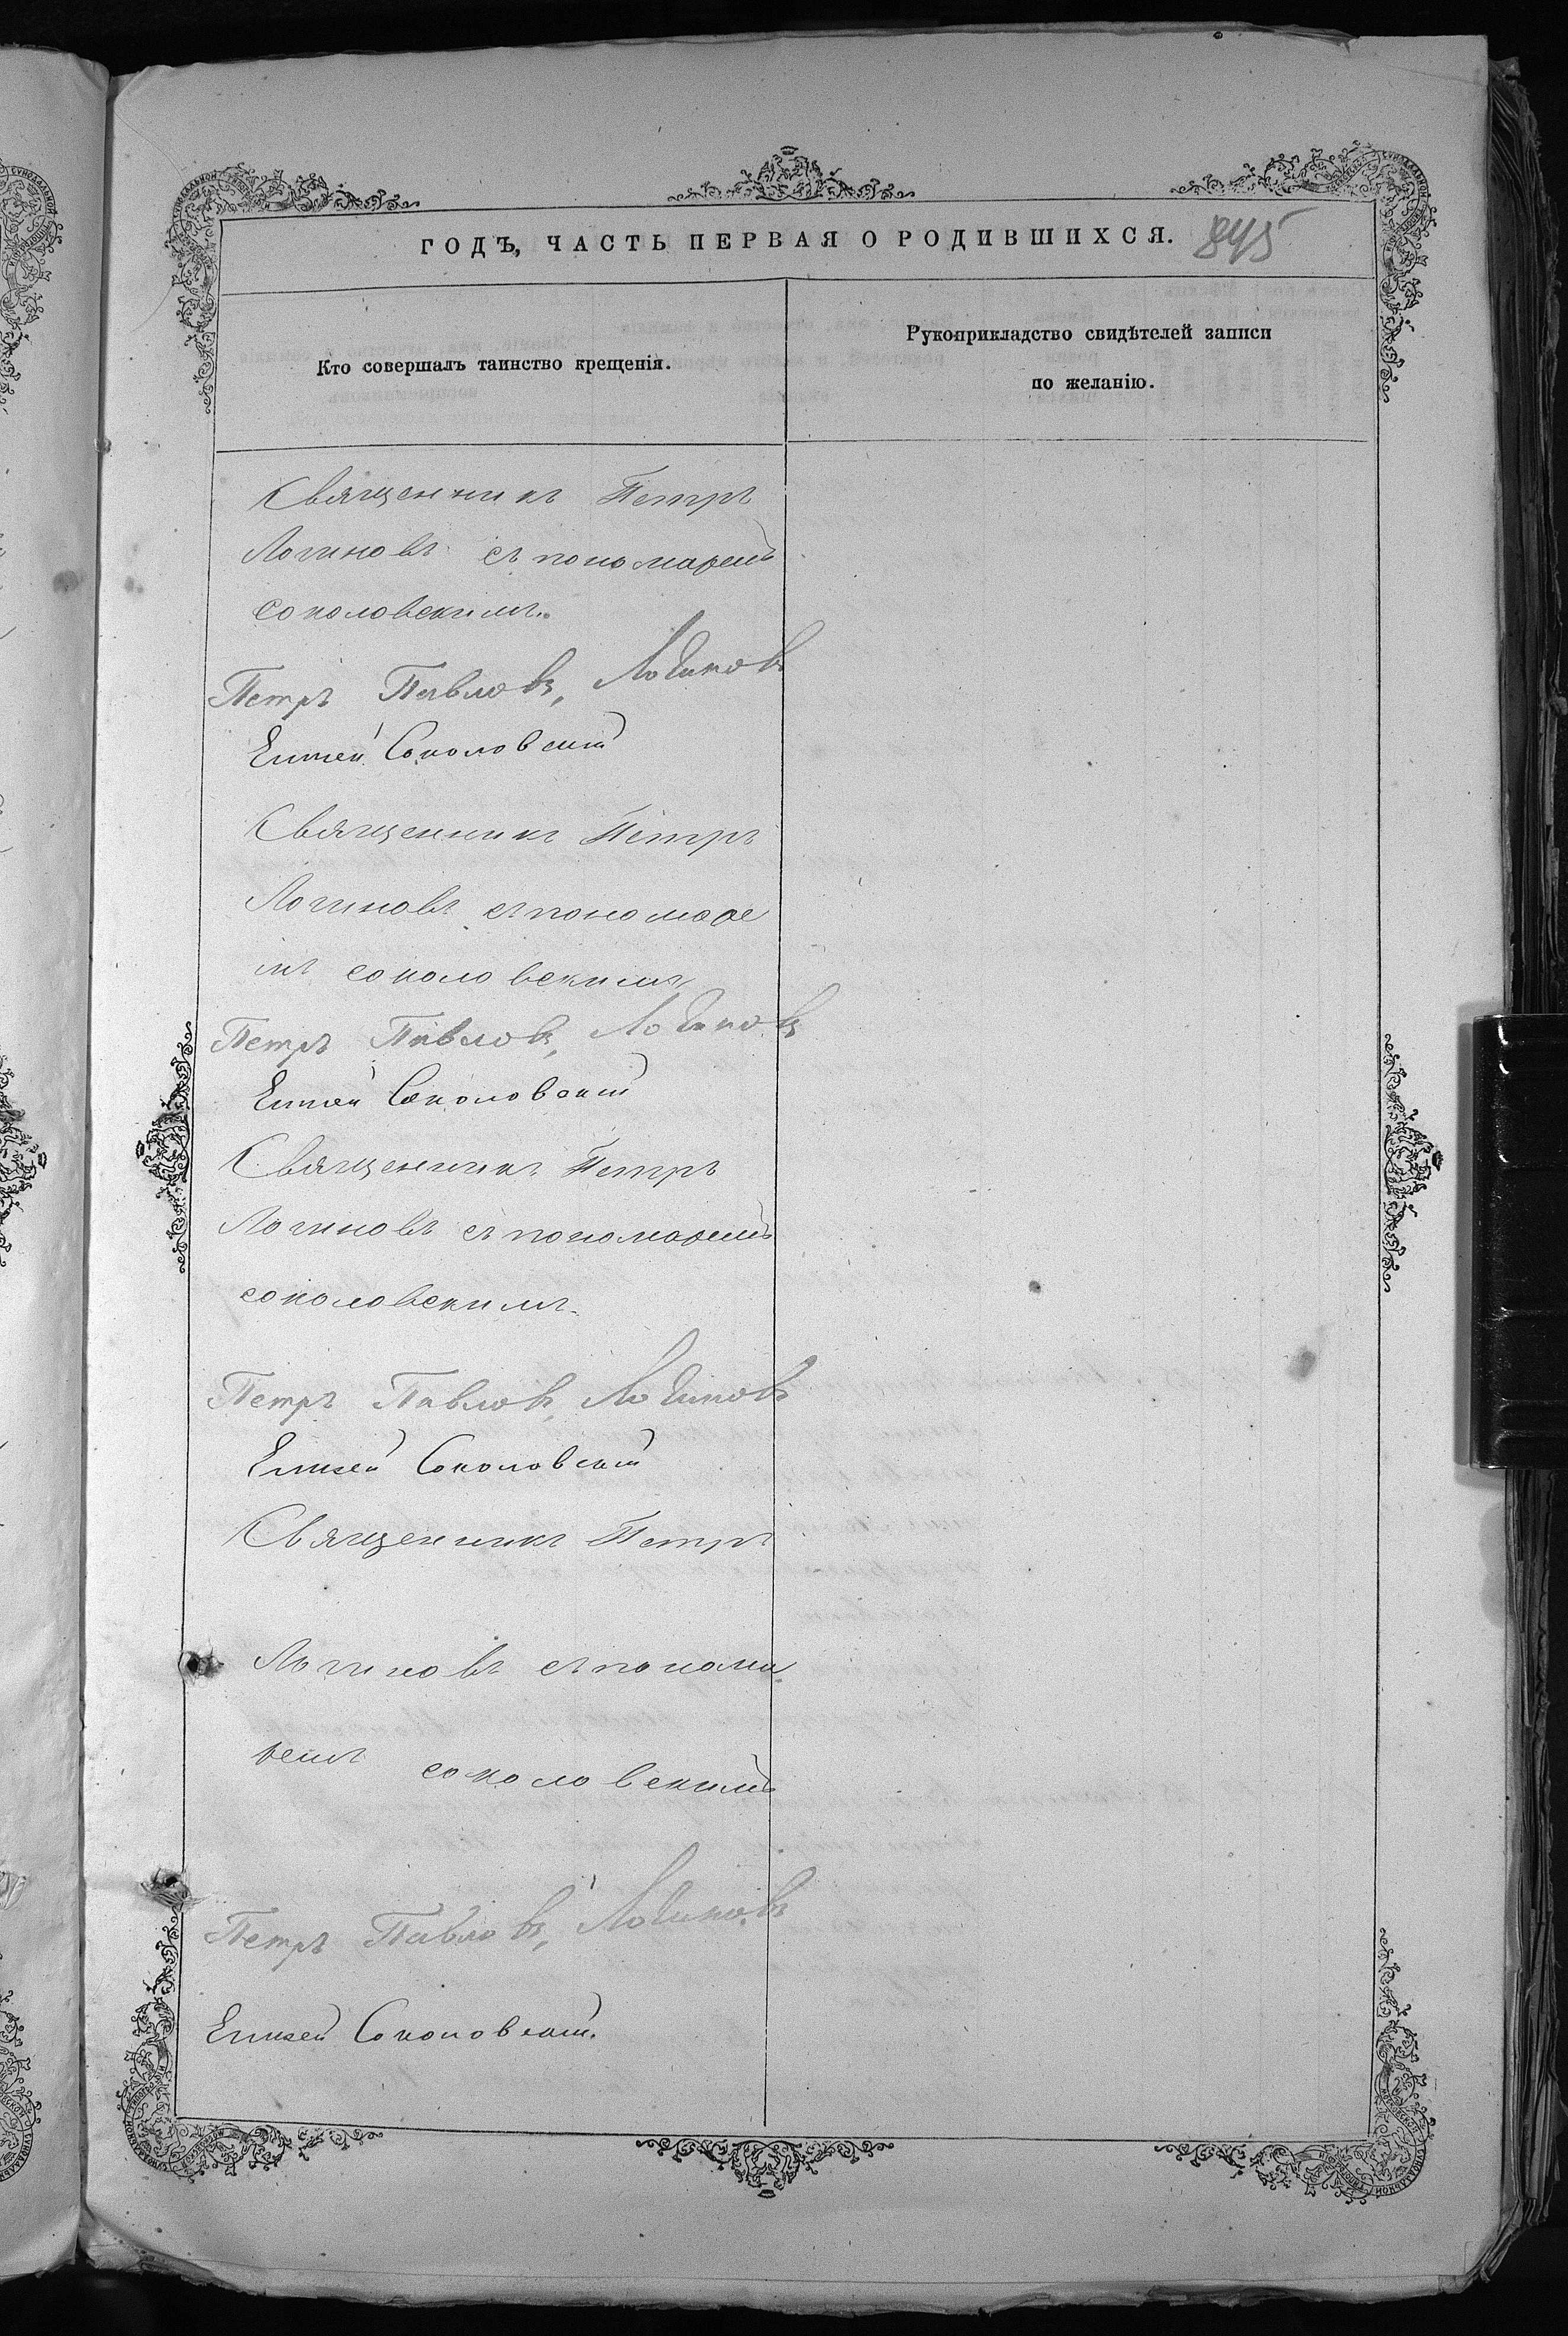 ГОДЪ, ЧАСТЬ ПЕРВАЯ О РОДИВШИХСЯ. 845
Кто совершалъ таинство крещенія.
Рукоприкладство свидѣтелей записи
по желанію.
Священникъ Петръ
Логиновъ съ пономаремъ
Соколовскимъ.
Петръ Павловъ, Логиновъ
Елисей Соколовскій
Священникъ Петръ
Логиновъ съ пономаре
мъ соколовскимъ
Петръ Павловъ, Логиновъ
Елисей Соколовскій
Священникъ Петръ
Логиновъ съ пономаремъ
соколовскимъ.
Петръ Павловъ, Логиновъ
Елисей Соколовскій
Священникъ Петръ
Логиновъ съ понома
ремъ соколовскимъ
Петръ Павловъ, Логиновъ
Елисей Соколовскій.